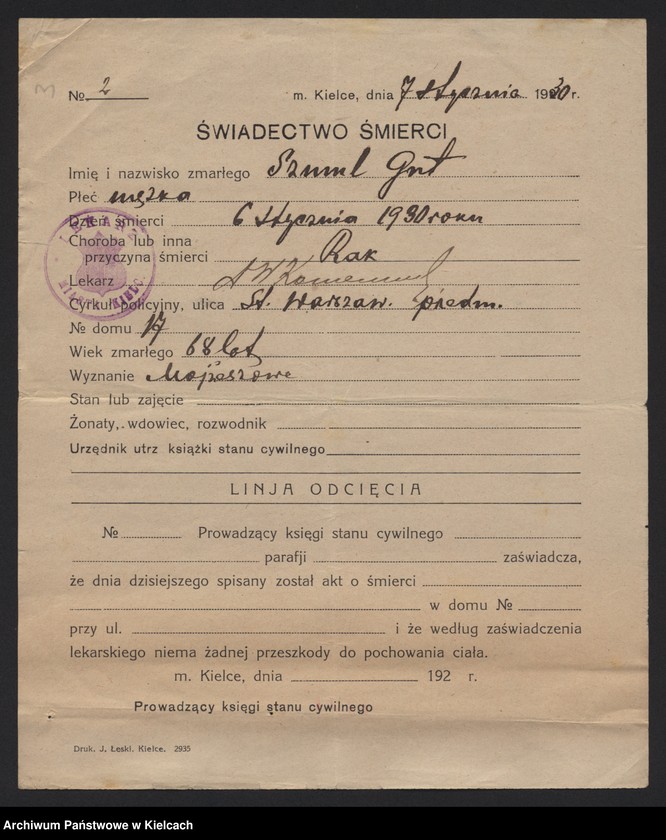 № 2 m. Kielce, dnia 7 stycznia 1930 r.
ŚWIADECTWO ŚMIERCI
Imię i nazwisko zmarłego Szmul Gut
Płeć męska
Dzień śmierci 6 Stycznia 1930 roku
Choroba lub inna
przyczyna śmierci Rak
Lekarz
Cyrkuł policyjny, ulica St. Warszaw. przedm.
№ domu 17
Wiek zmarłego 68 lat
Wyznanie Mojżeszowe
Stan lub zajęcie
Żonaty, wdowiec, rozwodnik
Urzędnik utrz książki stanu cywilnego
LINJA ODCIĘCIA
№ Prowadzący księgi stanu cywilnego
parafji zaświadcza,
że dnia dzisiejszego spisany został akt o śmierci
w domu №
przy ul. i że według zaświadczenia
lekarskiego niema żadnej przeszkody do pochowania ciała.
m. Kielce, dnia 192 r.
Prowadzący księgi stanu cywilnego
Druk. J. Łeski, Kielce. 2935
Archiwum Państwowe w Kielcach